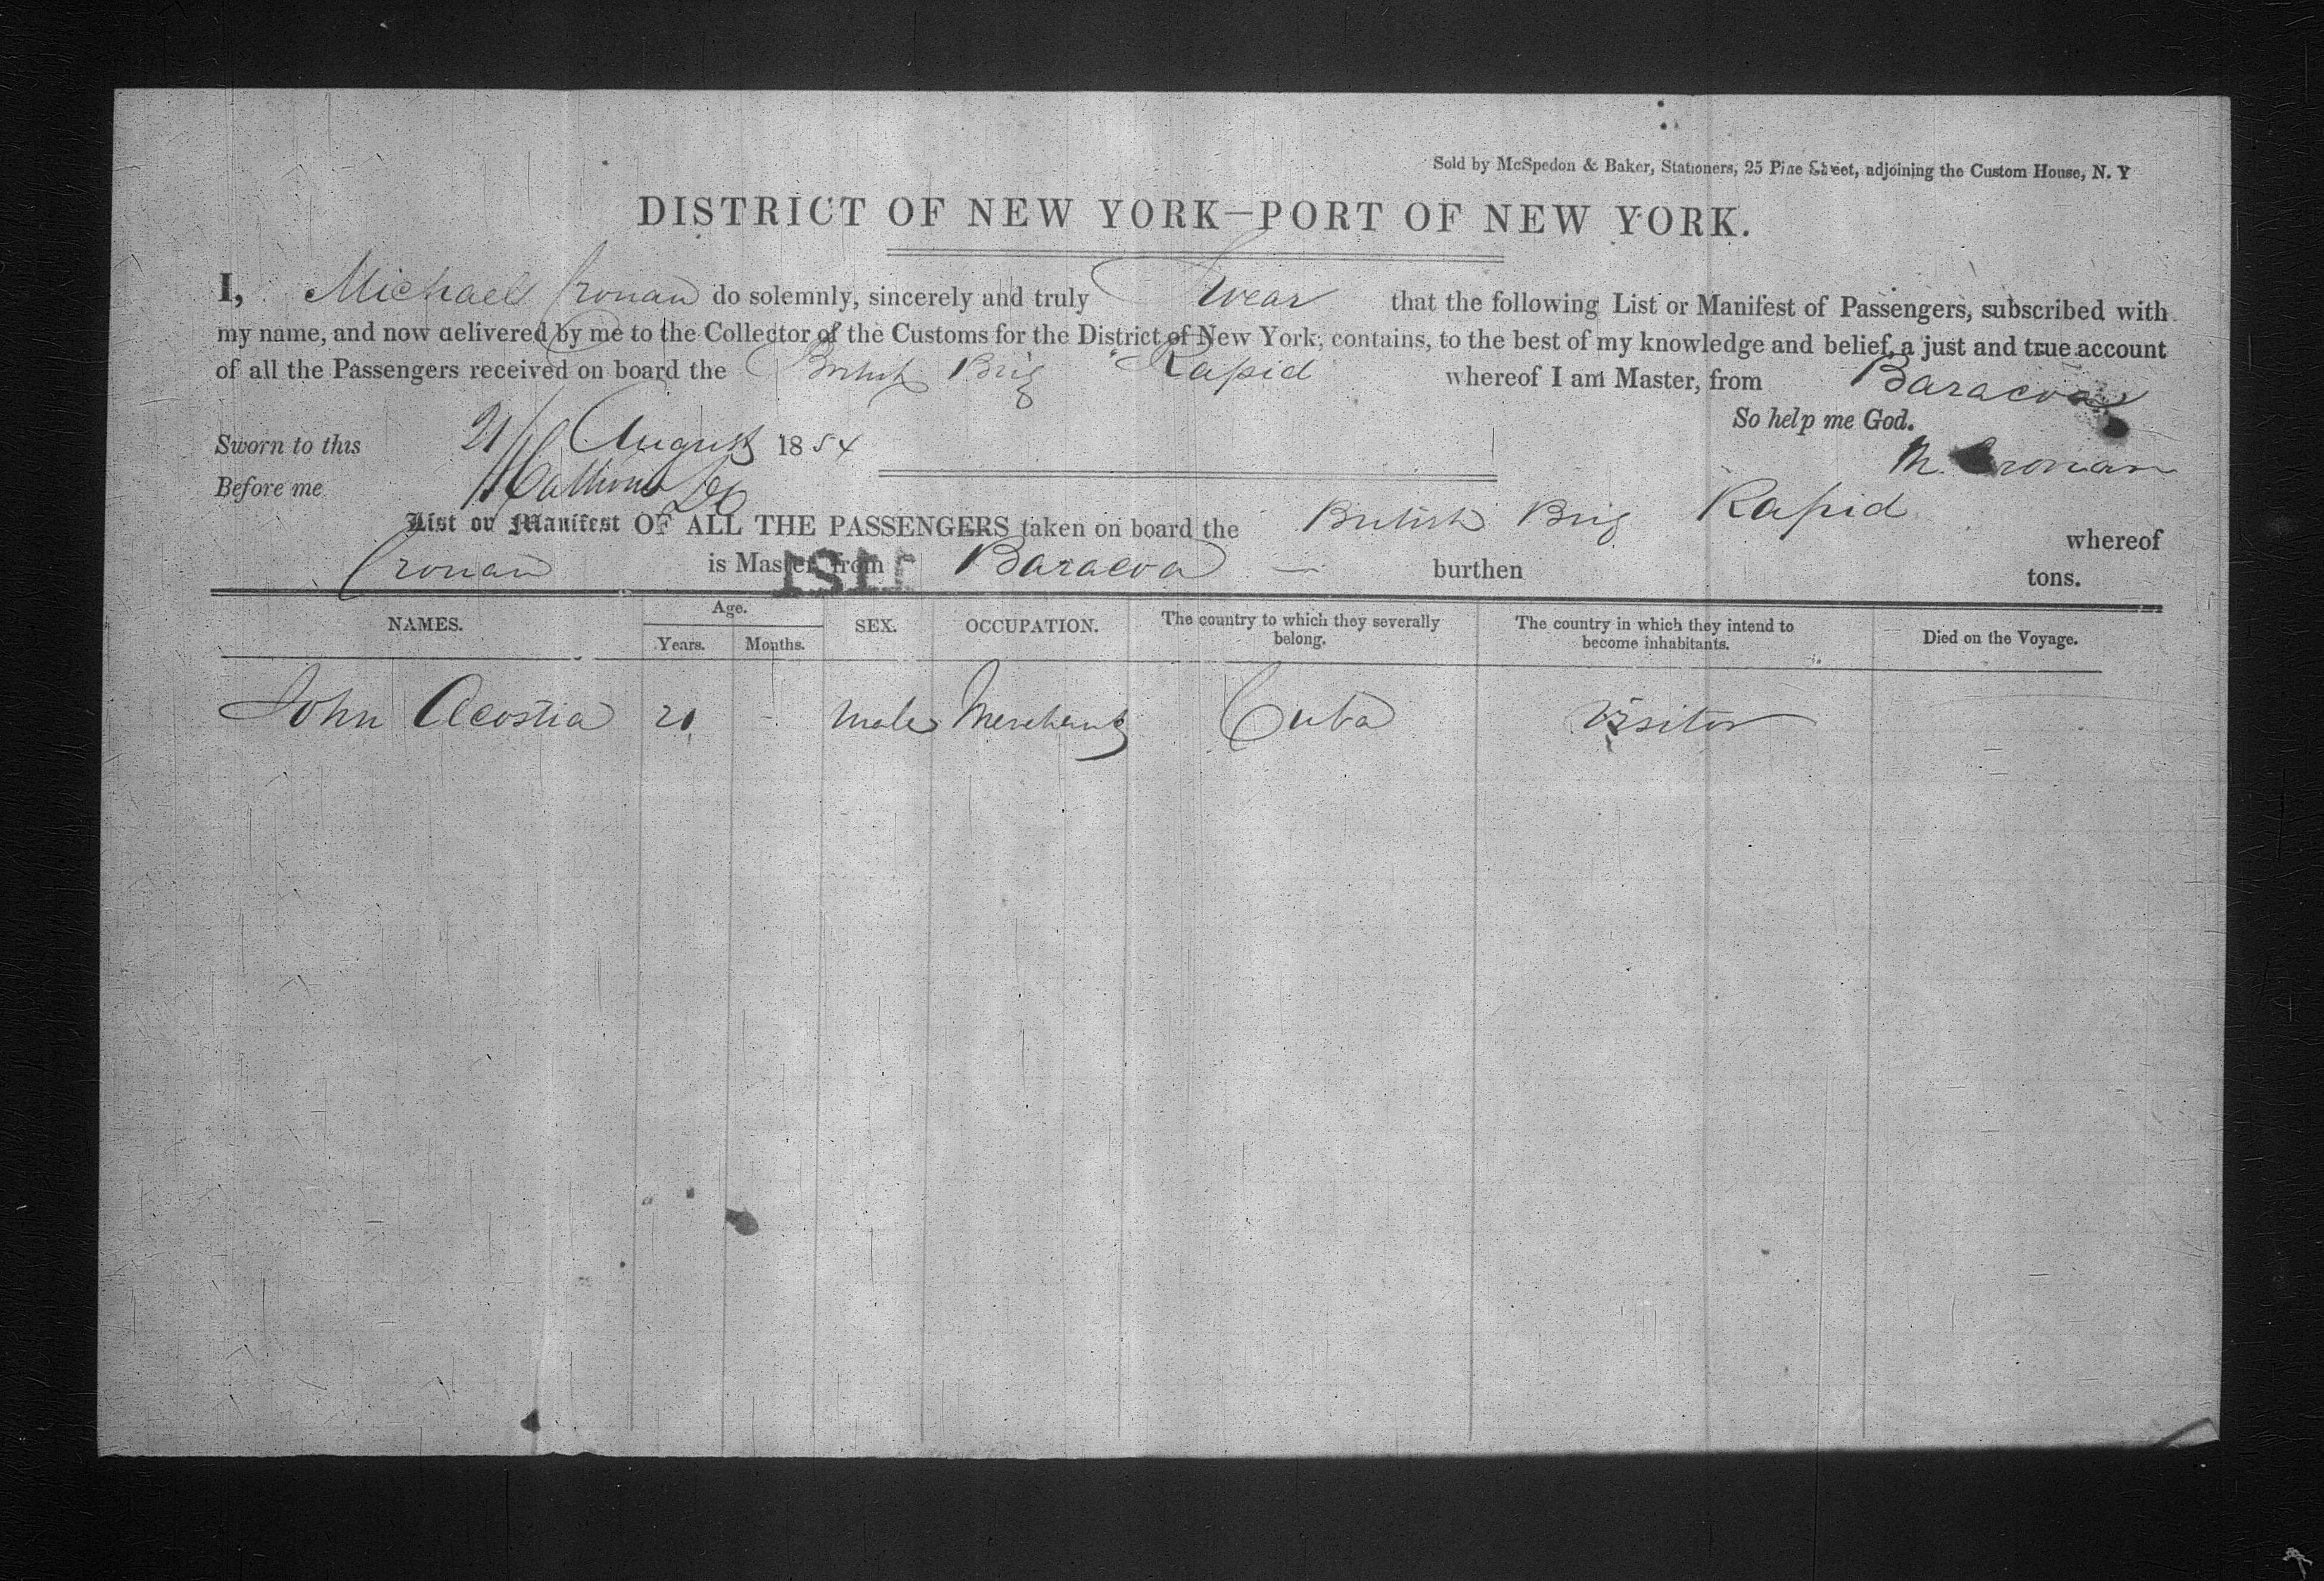 Sold by McSpedon & Baker, Stationers, 25 Pine Street, adjoining the Custom House, N. Y
DISTRICT OF NEW YORK—PORT OF NEW YORK.
I, Michael Cronan do solemnly, sincerely and truly Swear that the following List or Manifest of Passengers, subscribed with
my name, and now delivered by me to the Collector of the Customs for the District of New York, contains, to the best of my knowledge and belief, a just and true account
of all the Passengers received on board the British Brig Rapid whereof I am Master, from Baracoa
So help me God.
Sworn to this 21 August 1854
M. Cronan
Before me
List or Manifest OF ALL THE PASSENGERS taken on board the British Brig Rapid whereof
Cronan is Master, from Baracoa — burthen tons.
NAMES. Age. Years. Months. SEX. OCCUPATION. The country to which they severally belong. The country in which they intend to become inhabitants. Died on the Voyage.
John Acostia 21 - Male Merchant Cuba Visitor